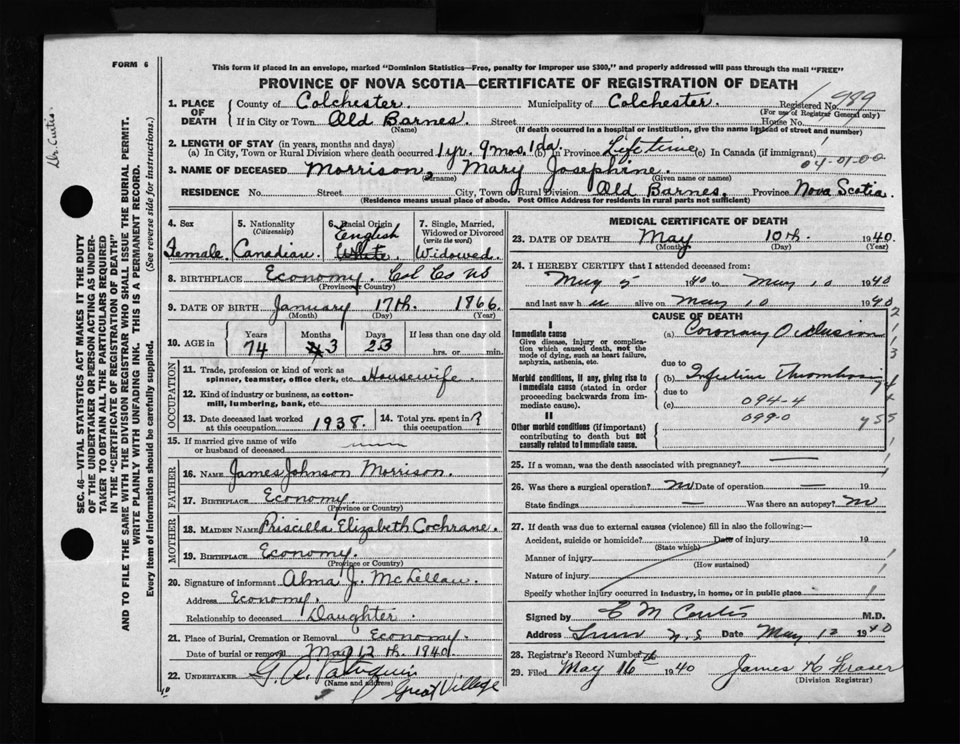 FORM 6
This form if placed in an envelope, marked "Dominion Statistics—Free, penalty for improper use $300," and properly addressed will pass through the mail "FREE"
PROVINCE OF NOVA SCOTIA—CERTIFICATE OF REGISTRATION OF DEATH
Dr. Curtis.
SEC. 46—VITAL STATISTICS ACT MAKES IT THE DUTY
OF THE UNDERTAKER OR PERSON ACTING AS UNDER-
TAKER TO OBTAIN ALL THE PARTICULARS REQUIRED
IN THE "CERTIFICATE OF REGISTRATION OF DEATH"
AND TO FILE THE SAME WITH THE DIVISION REGISTRAR WHO SHALL ISSUE THE BURIAL PERMIT.
WRITE PLAINLY WITH UNFADING INK. THIS IS A PERMANENT RECORD.
Every item of information should be carefully supplied. (See reverse side for instructions.)
1. PLACE OF DEATH County of Colchester. Municipality of Colchester. Registered No. 989
(For use of Registrar General only)
If in City or Town Old Barnes. Street House No.
(Name) (If death occurred in a hospital or institution, give the name instead of street and number)
2. LENGTH OF STAY (in years, months and days)
(a) In City, Town or Rural Division where death occurred 1 yr. 9 mos. 1 da. (b) In Province Life time (c) In Canada (if immigrant)
04-01-00
3. NAME OF DECEASED Morrison, Mary Josephine.
(Surname) (Given name or names)
RESIDENCE No. Street City, Town or Rural Division Old Barnes, Province Nova Scotia
(Residence means usual place of abode. Post Office Address for residents in rural parts not sufficient)
4. Sex Female.
5. Nationality (Citizenship) Canadian.
6. Racial Origin English White
7. Single, Married, Widowed or Divorced (write the word) Widowed.
8. BIRTHPLACE Economy. Col Co NS
(Province or Country)
9. DATE OF BIRTH January 17th. 1866.
(Month) (Day) (Year)
10. AGE in Years 74 Months 3 Days 23 If less than one day old
hrs. or min.
OCCUPATION
11. Trade, profession or kind of work as
spinner, teamster, office clerk, etc. Housewife.
12. Kind of industry or business, as cotton-
mill, lumbering, bank, etc.
13. Date deceased last worked at this occupation 1938.
14. Total yrs. spent in this occupation ?
15. If married give name of wife
or husband of deceased
FATHER
16. NAME James Johnson Morrison.
17. BIRTHPLACE Economy.
(Province or Country)
MOTHER
18. MAIDEN NAME Priscilla Elizabeth Cochrane.
19. BIRTHPLACE Economy.
(Province or Country)
20. Signature of informant Alma J. McLellan.
Address Economy.
Relationship to deceased Daughter.
21. Place of Burial, Cremation or Removal Economy.
Date of burial or removal May 12 th. 1940.
22. UNDERTAKER
(Name and address) Great Village
MEDICAL CERTIFICATE OF DEATH
23. DATE OF DEATH May 10th. 1940.
(Month) (Day) (Year)
24. I HEREBY CERTIFY that I attended deceased from:
May 5 1940 to May 10 1940
and last saw h er alive on May 10 1940
CAUSE OF DEATH
I
Immediate cause (a) Coronary Occlusion
Give disease, injury or complication which caused death, not the mode of dying, such as heart failure, asphyxia, asthenia, etc.
due to
Morbid conditions, if any, giving rise to immediate cause (stated in order proceeding backwards from immediate cause). (b) Thrombosis
due to
(c) 094-4
II 099-0
Other morbid conditions (if important) contributing to death but not causally related to immediate cause.
25. If a woman, was the death associated with pregnancy? —
26. Was there a surgical operation? No Date of operation — 19
State findings — Was there an autopsy? No
27. If death was due to external causes (violence) fill in also the following:—
Accident, suicide or homicide? Date of injury 19
(State which)
Manner of injury
(How sustained)
Nature of injury
Specify whether injury occurred in industry, in home, or in public place
Signed by C M Curtis M.D.
Address Truro N.S Date May 12 1940
28. Registrar's Record Number
29. Filed May 16th 1940 James K Fraser
(Division Registrar)